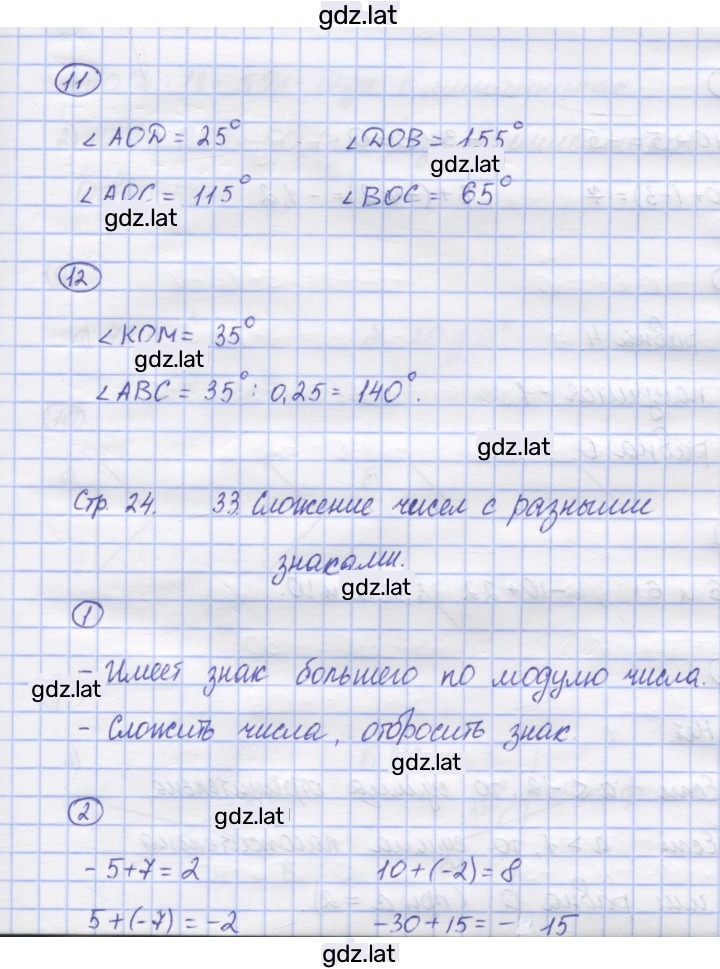 gdz.lat
11
∠AOD = 25° ∠DOB = 155°
gdz.lat
∠AOC = 115° ∠BOC = 65°
gdz.lat
12
∠KOM = 35°
gdz.lat
∠ABC = 35° : 0,25 = 140°.
gdz.lat
Стр. 24. 33. Сложение чисел с разными
знаками.
gdz.lat
1
- Имеет знак большего по модулю числа.
gdz.lat
- Сложить числа, отбросить знак.
gdz.lat
2
gdz.lat
- 5+7 = 2 10+(-2) = 8
5+(-7) = -2 -30+15 = - 15
gdz.lat